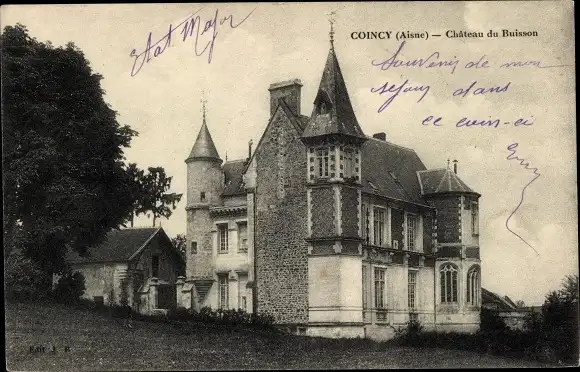 COINCY (Aisne) — Château du Buisson
Etat Major
Souvenir de mon
séjour dans
ce coin-ci
Edit J. P.